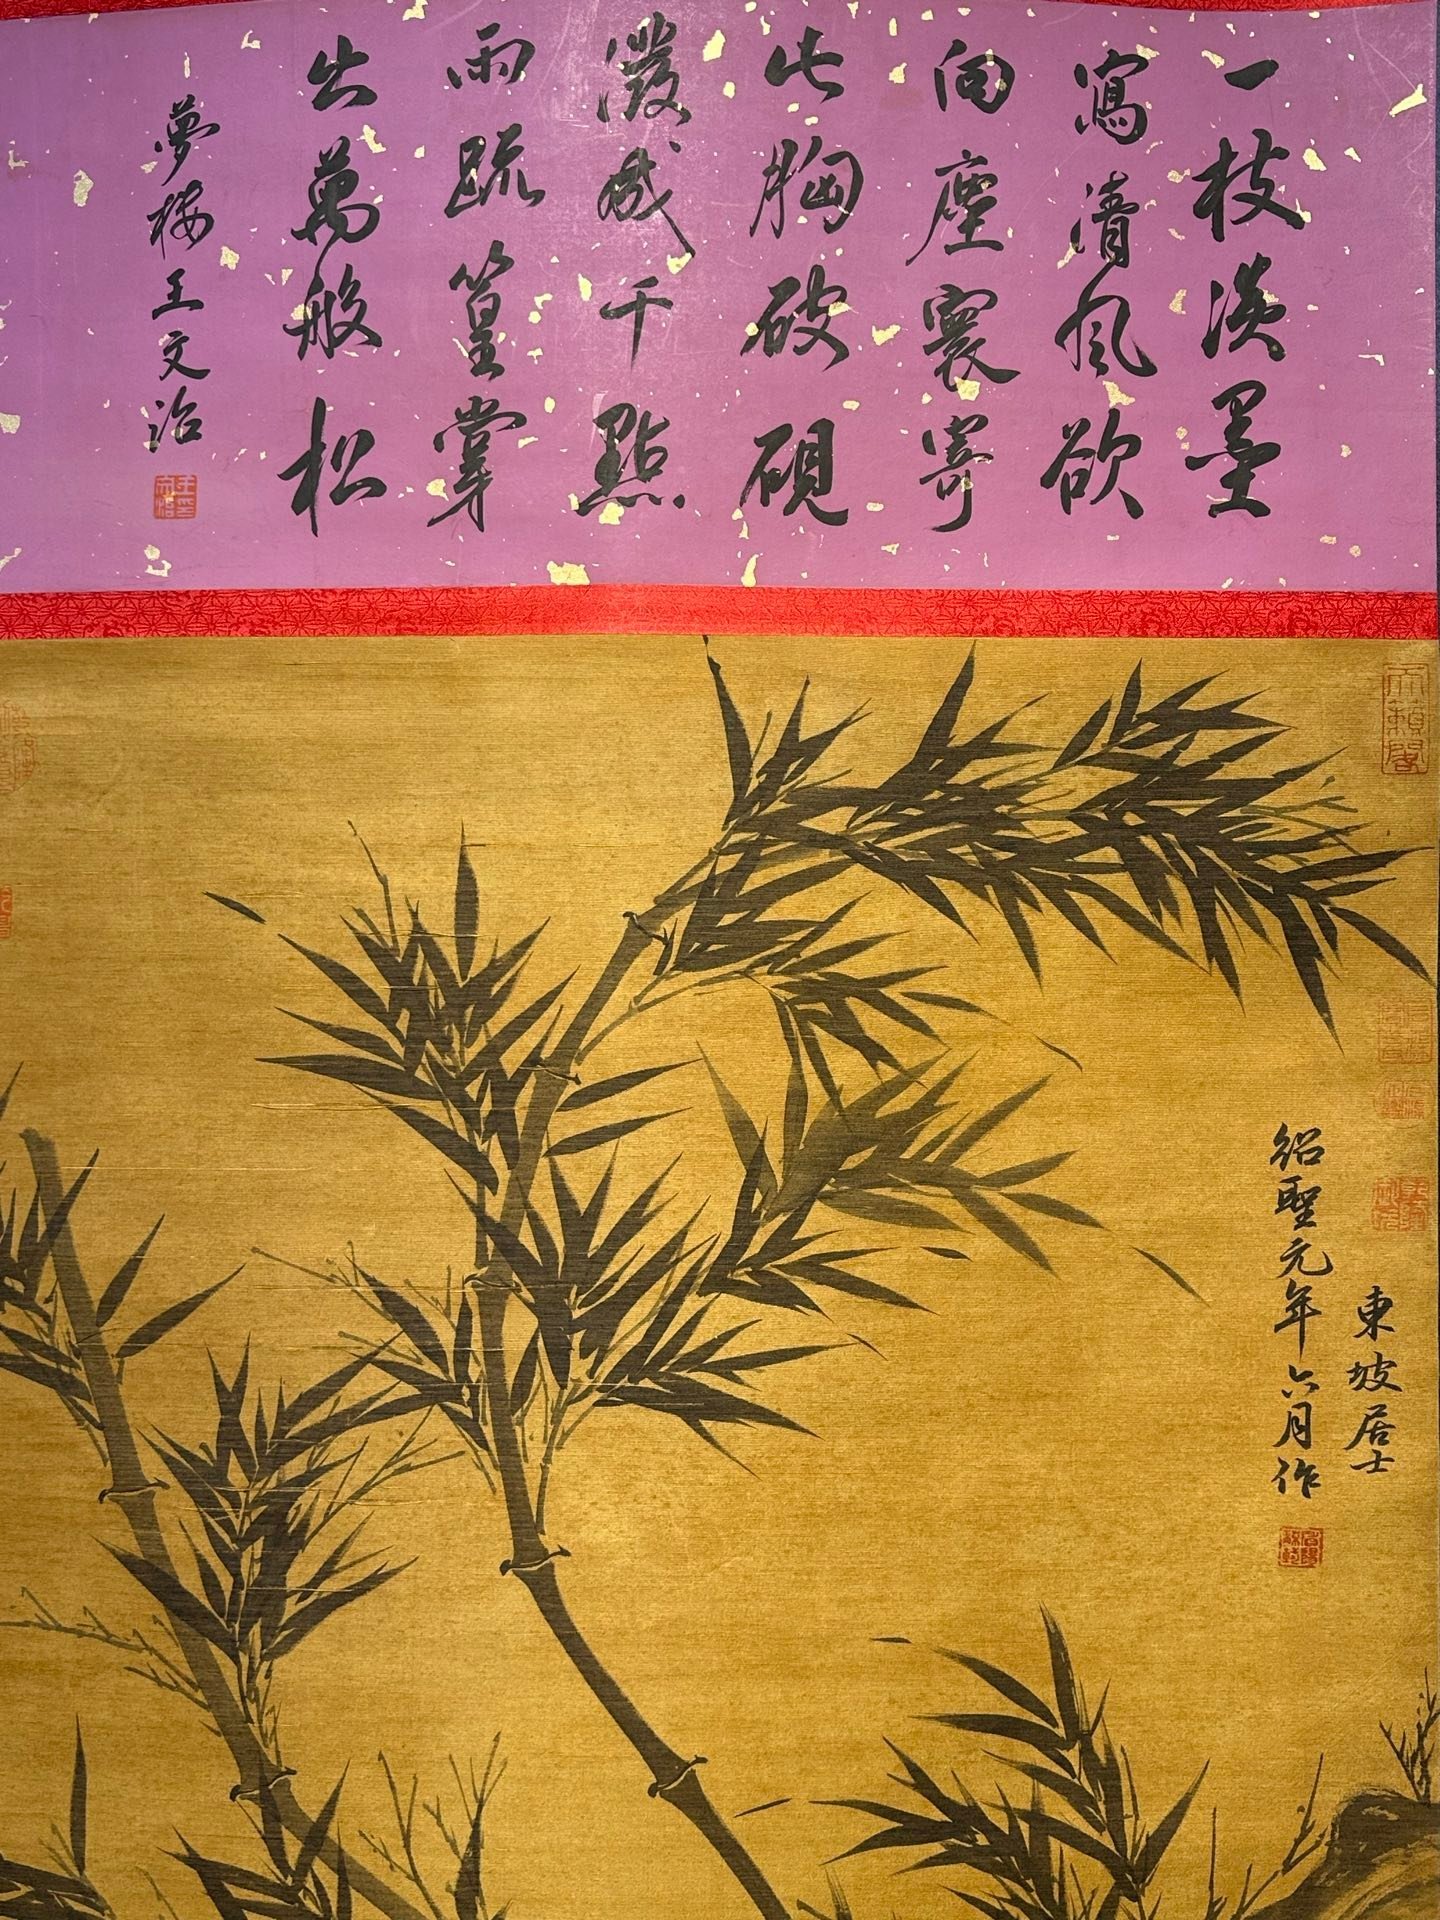 一枝淡墨
寫清風欲
向塵寰寄
此胸破硯
潑成千點
雨疏篁掌
出萬般松
夢樓王文治
天籟閣
東坡居士
紹聖元年六月作